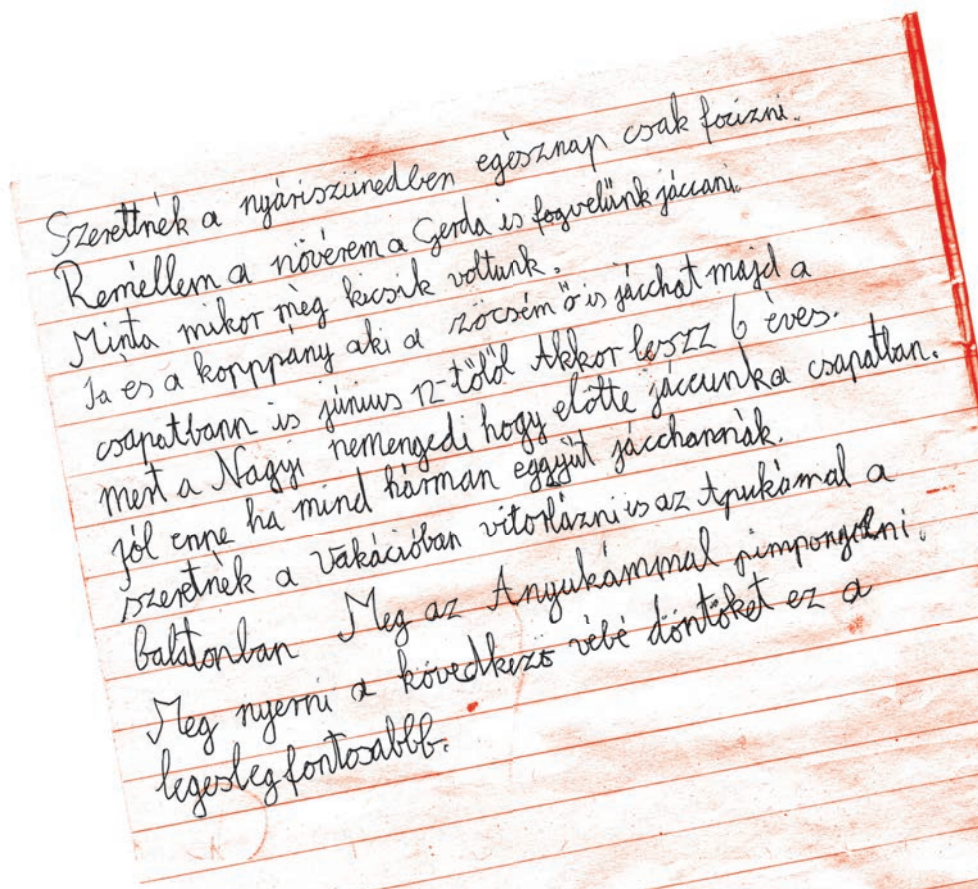 Szerettnék a nyáriszünedben egésznap csak focizni.
Reméllem a növérem a Gerda is fogvelünk jáccani.
Minta mikor még kicsik voltunk.
Ja és a korppány aki a zöcsém ő is jácchat majd a
csapatbann is június 12-tölöl Akkor leszz 6 éves.
mert a Nagyi nemengedi hogy elötte jáccunka csapatban.
jól enne ha mind hárman eggyüt jácchannák.
szeretnék a vakációban vitorlázni is az Apukámal a
balatonban Meg az Anyukámmal pimpongolni.
Meg nyerni a kövedkező vébé döntöket ez a
legesleg fontosabbb.